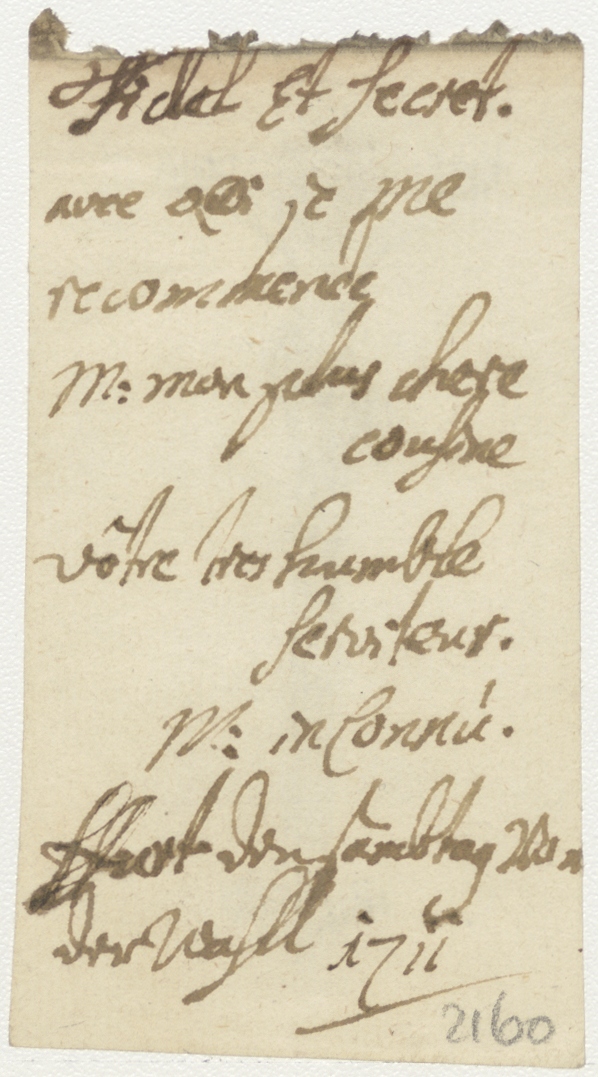 Fidel Et secret.
avec qui je me
recommende
M: mon plus chere
cousine
vôtre tres humble
serviteur.
M: inConnú.
den sambtag Vo
der Wahl 1711
2160